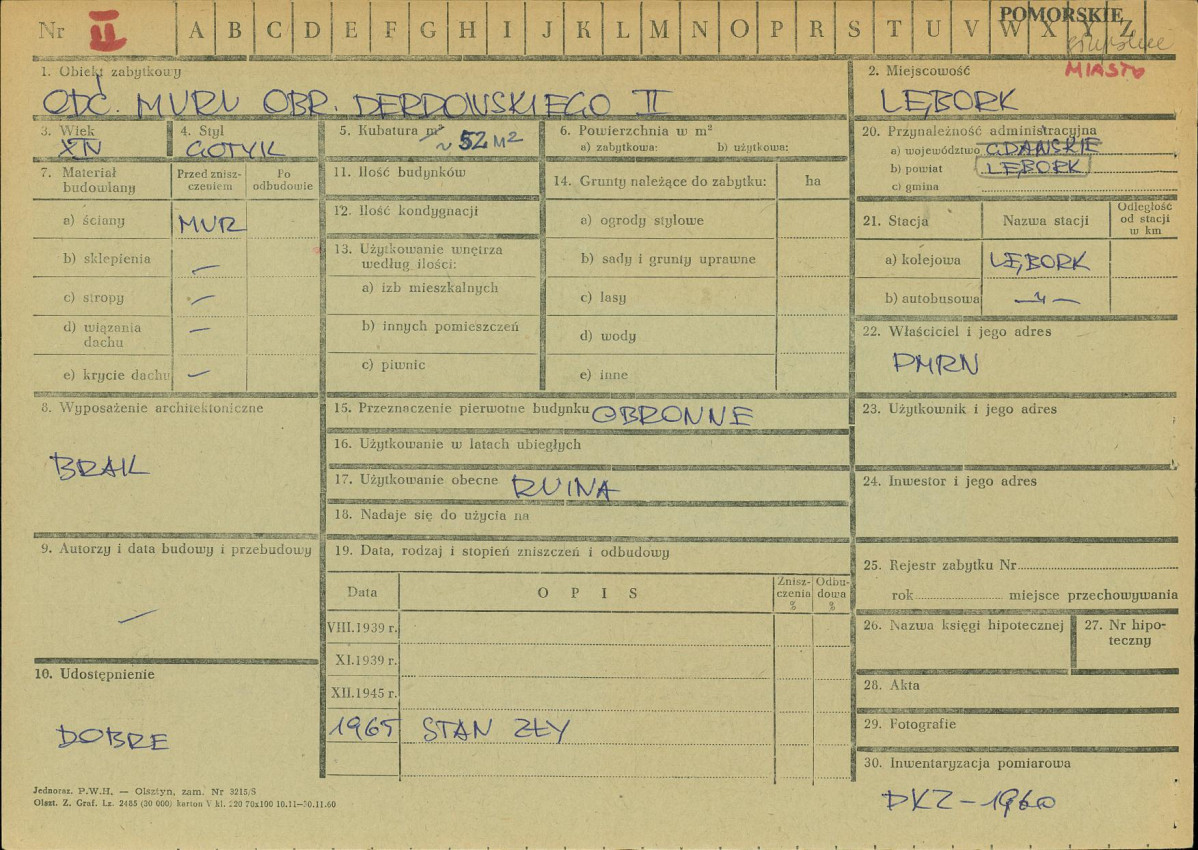 Nr II A B C D E F G H I J K L M N O P R S T U V W X Y Z
POMORSKIE
MIASTO
1. Obiekt zabytkowy
ODC. MURU OBR. DERDOWSKIEGO II
2. Miejscowość
LĘBORK
3. Wiek
XIV
4. Styl
GOTYK
5. Kubatura m³
~ 52 M2
6. Powierzchnia w m²
a) zabytkowa: b) użytkowa:
7. Materiał budowlany
Przed znisz-
czeniem
Po
odbudowie
a) ściany MUR
b) sklepienia —
c) stropy —
d) wiązania
dachu —
e) krycie dachu —
8. Wyposażenie architektoniczne
BRAK
9. Autorzy i data budowy i przebudowy
—
10. Udostępnienie
DOBRE
11. Ilość budynków
12. Ilość kondygnacji
13. Użytkowanie wnętrza
według ilości:
a) izb mieszkalnych
b) innych pomieszczeń
c) piwnic
14. Grunty należące do zabytku: ha
a) ogrody stylowe
b) sady i grunty uprawne
c) lasy
d) wody
e) inne
15. Przeznaczenie pierwotne budynku OBRONNE
16. Użytkowanie w latach ubiegłych
17. Użytkowanie obecne RUINA
18. Nadaje się do użycia na
19. Data, rodzaj i stopień zniszczeń i odbudowy
Data OPIS
Znisz-
czenia
%
Odbu-
dowa
%
VIII.1939 r.
XI.1939 r.
XII.1945 r.
1965 STAN ZŁY
20. Przynależność administracyjna
a) województwo GDAŃSKIE
b) powiat LĘBORK
c) gmina
21. Stacja Nazwa stacji
Odległość
od stacji
w km
a) kolejowa LĘBORK
b) autobusowa —〃—
22. Właściciel i jego adres
PMRN
23. Użytkownik i jego adres
24. Inwestor i jego adres
25. Rejestr zabytku Nr
rok miejsce przechowywania
26. Nazwa księgi hipotecznej
27. Nr hipo-
teczny
28. Akta
29. Fotografie
30. Inwentaryzacja pomiarowa
PKZ – 1960
Jednoraz. P.W.H. — Olsztyn, zam. Nr 3215/S
Olszt. Z. Graf. Lz. 2485 (30 000) karton V kl. 220 70x100 10.11—30.11.60